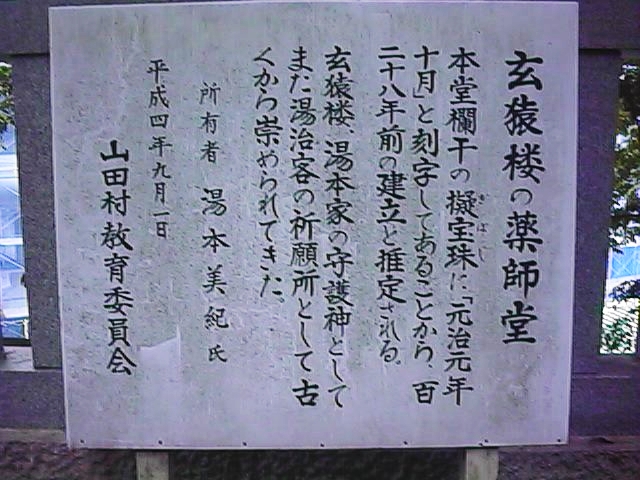 玄猿楼の薬師堂
本堂欄干の擬宝珠に「元治元年
ぎぼし
十月」と刻字してあることから、百
二十八年前の建立と推定される。
玄猿楼、湯本家の守護神として
また湯治客の祈願所として古
くから崇められてきた。
所有者 湯本美紀氏
平成四年九月一日
山田村教育委員会